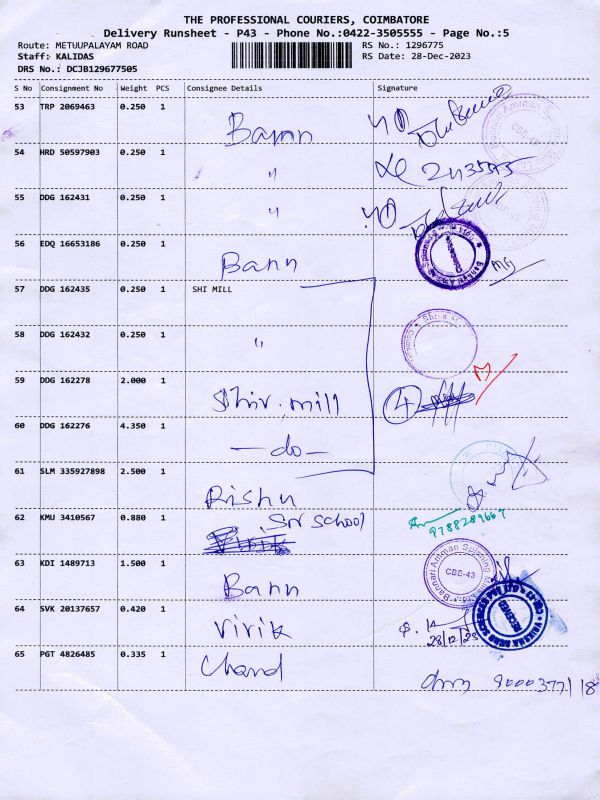 THE PROFESSIONAL COURIERS, COIMBATORE
Delivery Runsheet - P43 - Phone No.:0422-3505555 - Page No.:5
Route: METUUPALAYAM ROAD
RS No.: 1296775
Staff: KALIDAS
RS Date: 28-Dec-2023
DRS No.: DCJB129677505
S No Consignment No Weight PCS Consignee Details Signature
53 TRP 2069463 0.250 1
54 HRD 50597903 0.250 1 "
55 DDG 162431 0.250 1 "
56 EDQ 16653186 0.250 1 Bann
57 DDG 162435 0.250 1 SHI MILL
58 DDG 162432 0.250 1 "
59 DDG 162278 2.000 1 Shiv. mill 4
60 DDG 162276 4.350 1 -do-
61 SLM 335927898 2.500 1 Rishu
62 KMU 3410567 0.880 1 school 9788289667
63 KDI 1489713 1.500 1 Bann Bannari Amman Spinning CBE-43
64 SVK 20137657 0.420 1 Virik 28/12/23 RECEIVED
65 PGT 4826485 0.335 1 Chand